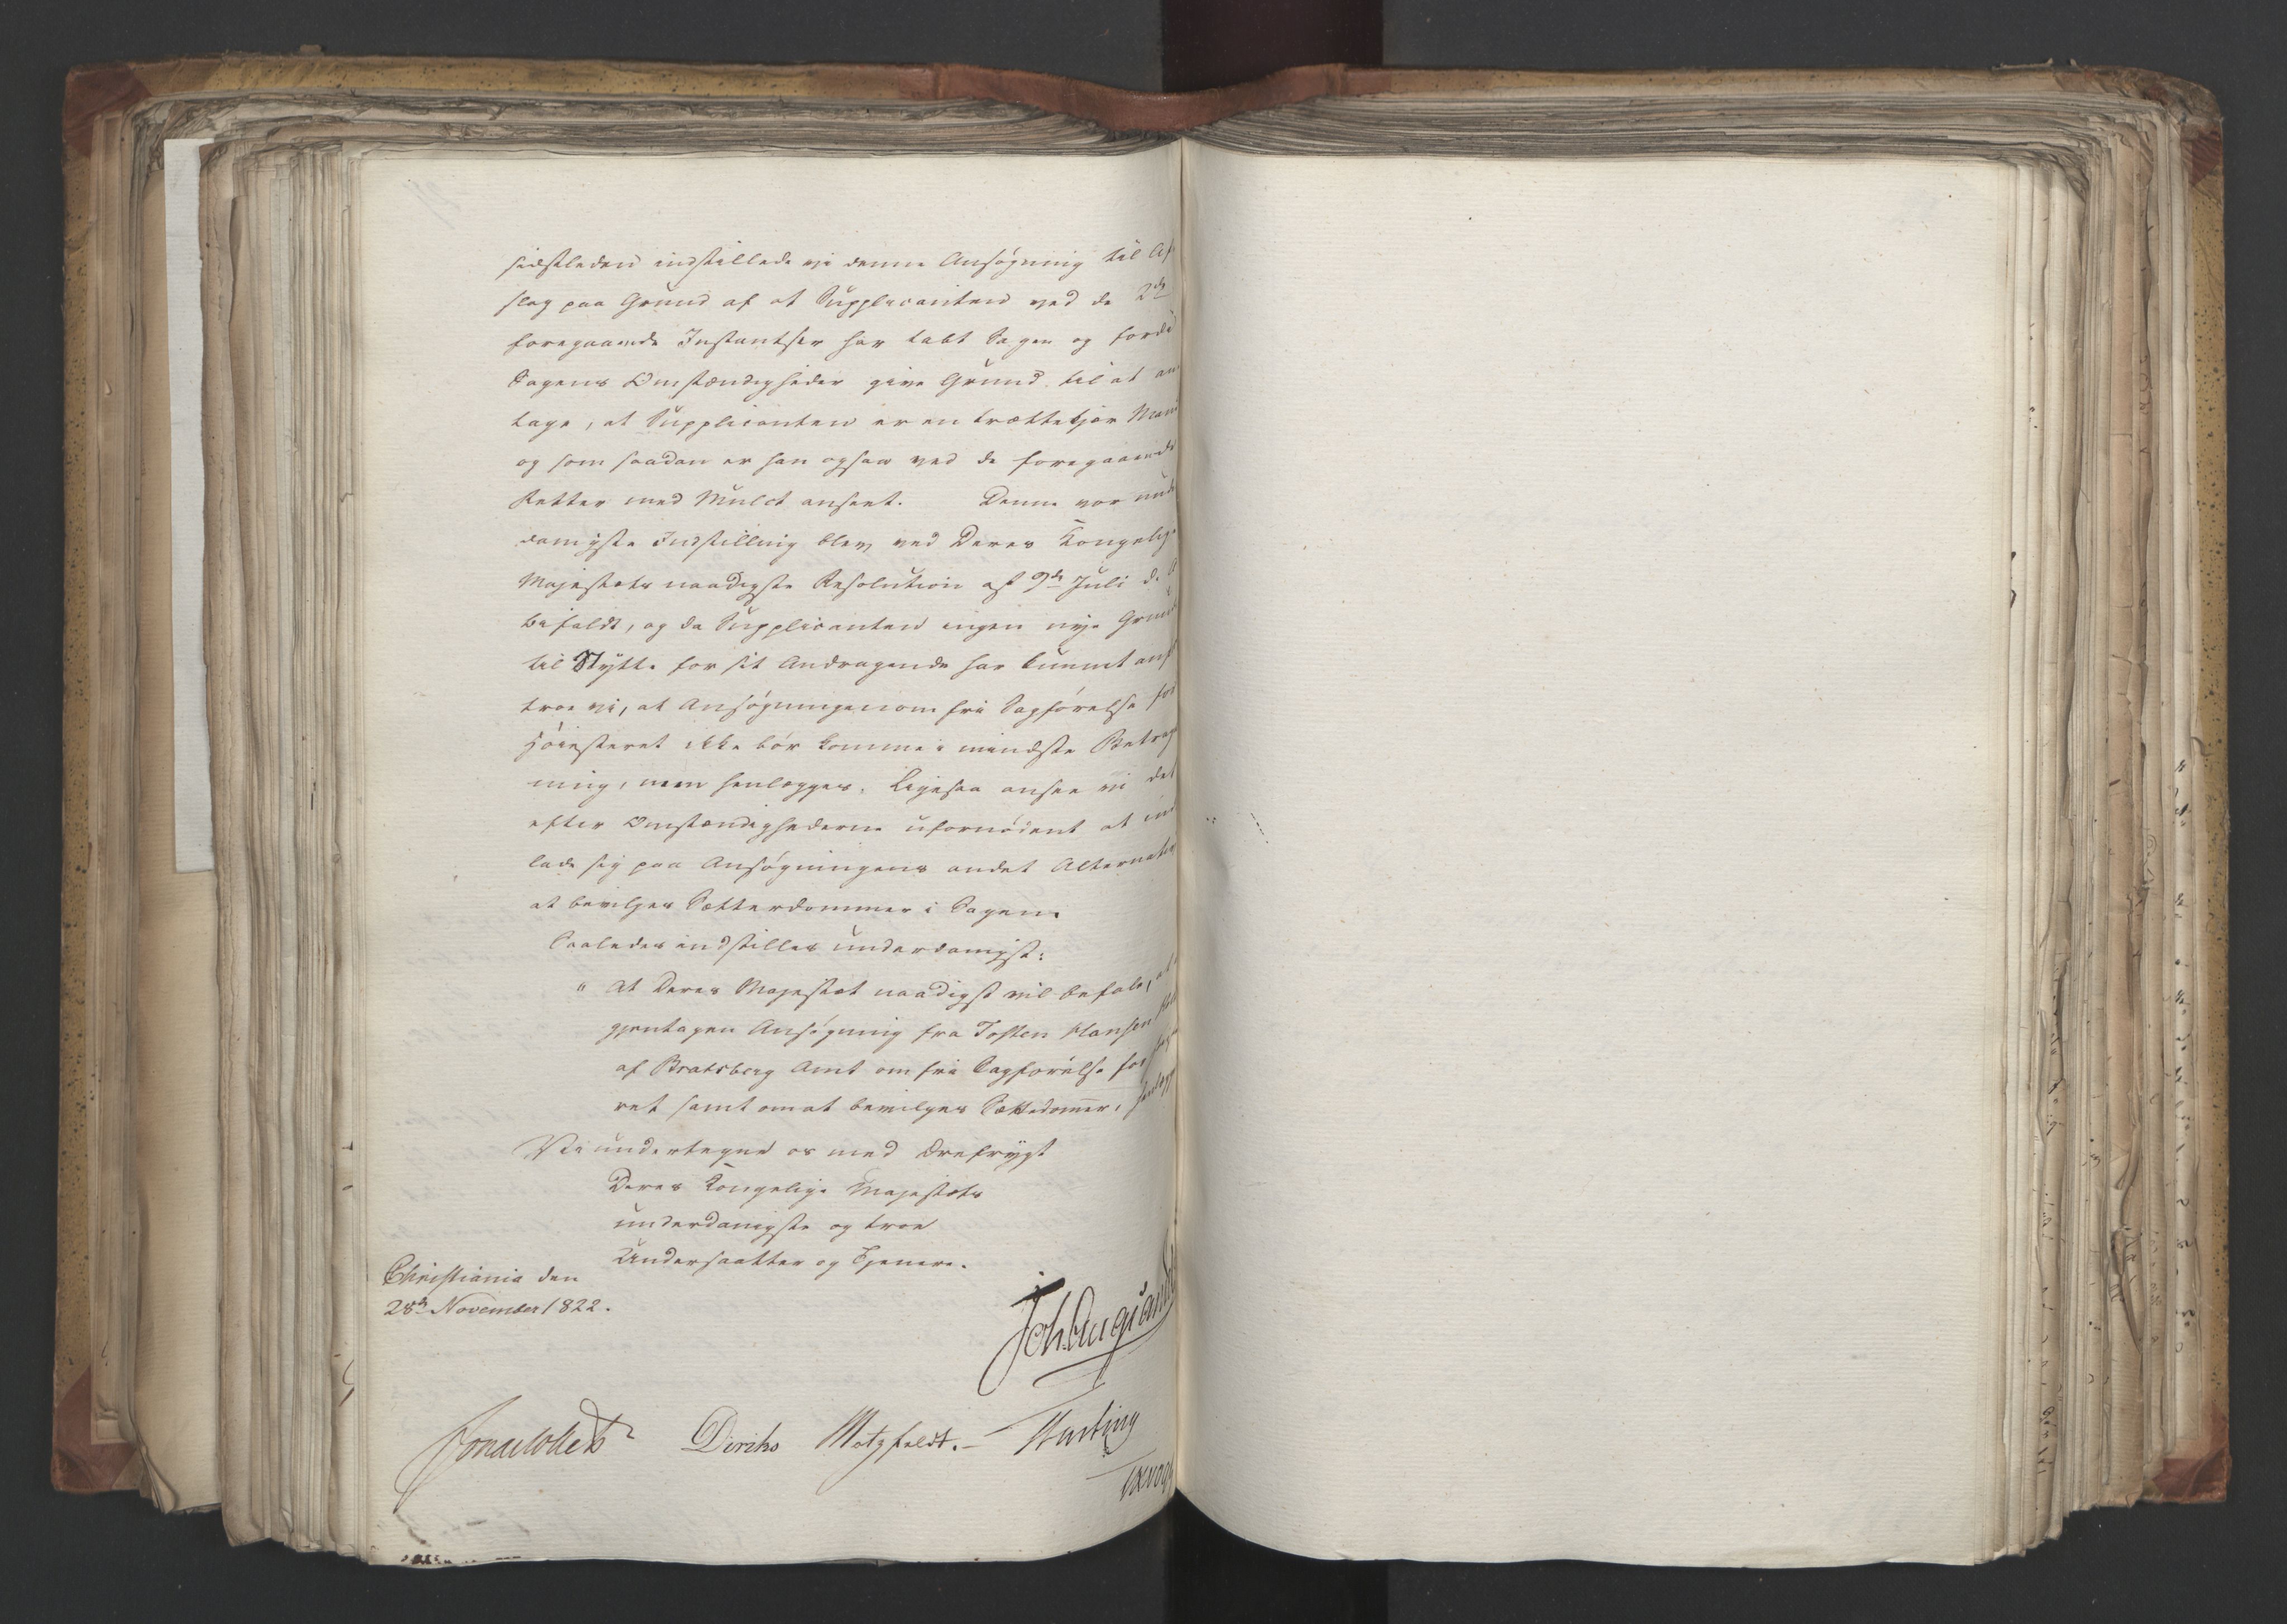 sidstleden indstillede vi denne Ansøgning til Af-
slag paa Grund af at Supplicanten ved de 2de
foregaaende Instantser har tabt Sagen og fordi
Sagens Omstændigheder give Grund til at an-
tage, at Supplicanten er en trættekjær Mand
og som saadan er han ogsaa ved de foregaaende
Retter med Mulct anseet. Denne vor unde
danigste Indstilling blev ved Deres Kongelige
Majestæts naadigste Resolution af 9de Juli d. A
bifaldt, og da Supplicanten ingen nye Grunde
til Støtte for sit Andragende har kunnet anf
troe vi, at Ansøgningen om fri Sagførelse for
Høiesteret ikke bør komme i mindste Betragt
ning, men henlægges. Ligesaa ansee vi det
efter Omstændighederne ufornødent at ind
lade sig paa Ansøgningens andet Alternativ
at bevilges Sætterdommer i Sagen.
Saaledes indstilles underdanigst:
" At Deres Majestæt naadigst vil befale, at
gjentagen Ansøgning fra Tosten Hansen
af Bratsberg Amt om fri Sagførelse for
ret samt om at bevilges Sættedommer, henlægg
Vi undertegne os med Ærefrygt
Deres Kongelige Majestæts
underdanigste og troe
Undersaatter og Tjenere.
Christiania den
28de November 1822.
Joh. Aug. Sand
Jonas Collett Diriks Motzfeldt. Harting